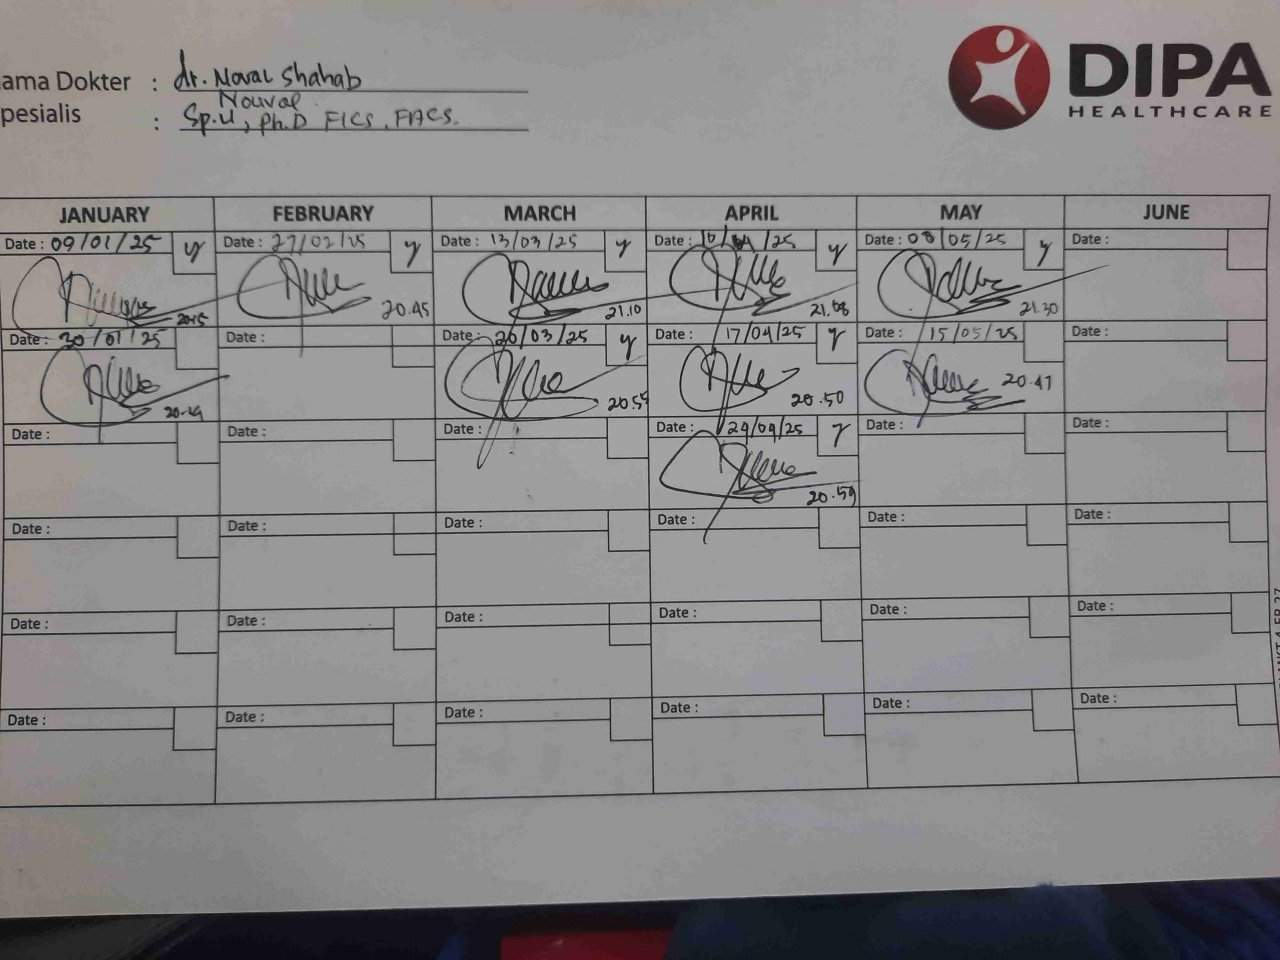 ama Dokter : dr. Noval Shahab
Nouval
pesialis : Sp.U, Ph.D FICS, FACS.
DIPA
HEALTHCARE
JANUARY FEBRUARY MARCH APRIL MAY JUNE
Date : 09/01/25 y Date : 27/02/25 y Date : 13/03/25 y Date : 10/04/25 y Date : 08/05/25 y Date :
20.15 20.45 21.10 21.08 21.30
Date : 30/01/25 Date : Date : 20/03/25 y Date : 17/04/25 y Date : 15/05/25 Date :
20.49 20.59 20.50 20.47
Date : Date : Date : Date : 24/04/25 y Date : Date :
20.59
Date : Date : Date : Date : Date : Date :
Date : Date : Date : Date : Date : Date :
Date : Date : Date : Date : Date : Date :